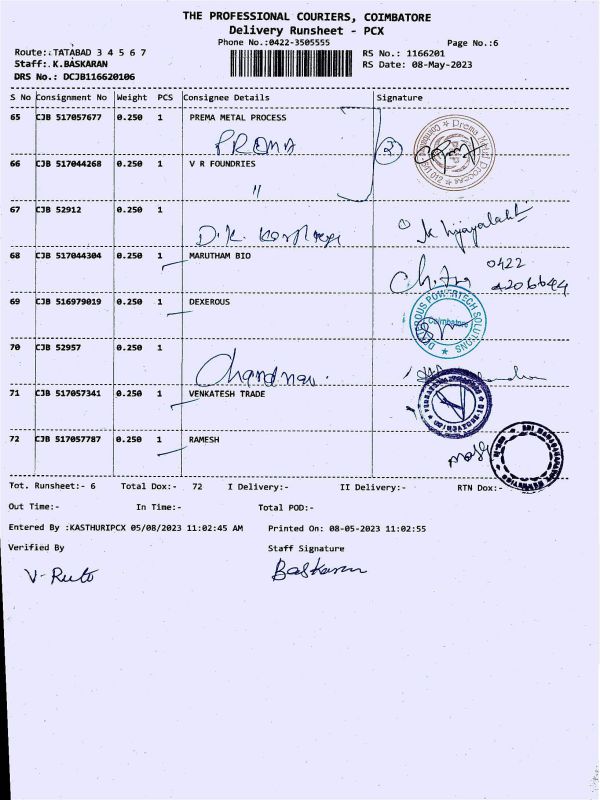 THE PROFESSIONAL COURIERS, COIMBATORE
Delivery Runsheet - PCX
Phone No.:0422-3505555 Page No.:6
Route:.TATABAD 3 4 5 6 7 RS No.: 1166201
Staff:.K.BASKARAN RS Date: 08-May-2023
DRS No.: DCJB116620106
S No Consignment No Weight PCS Consignee Details Signature
65 CJB 517057677 0.250 1 PREMA METAL PROCESS
PREMA
2
Prema Metal Process
66 CJB 517044268 0.250 1 V R FOUNDRIES
"
67 CJB 52912 0.250 1
D.K.
68 CJB 517044304 0.250 1 MARUTHAM BIO
Chitra 0422
4206644
69 CJB 516979019 0.250 1 DEXEROUS
DEXEROUS POWERTECH SOLUTIONS
Coimbatore
70 CJB 52957 0.250 1
71 CJB 517057341 0.250 1 VENKATESH TRADE
72 CJB 517057787 0.250 1 RAMESH
Tot. Runsheet:- 6 Total Dox:- 72 I Delivery:- II Delivery:- RTN Dox:-
Out Time:- In Time:- Total POD:-
Entered By :KASTHURIPCX 05/08/2023 11:02:45 AM Printed On: 08-05-2023 11:02:55
Verified By Staff Signature
Baskaran